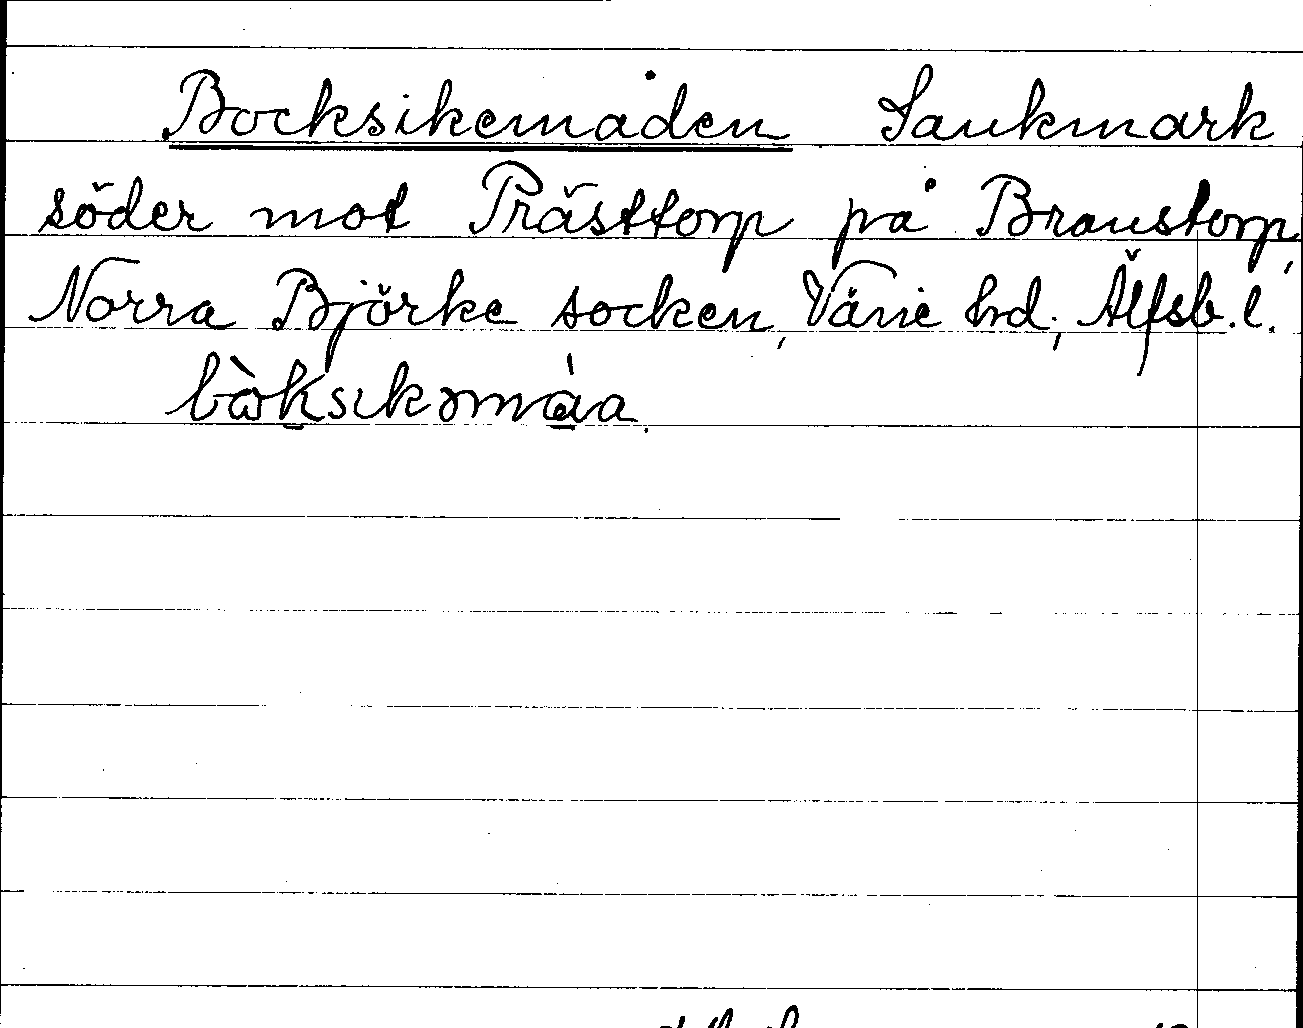 Bocksikemåden Sankmark
söder mot Prästtorp på Branstorp,
Norra Björke socken, Väne hd, Älfsb. l.
bòksikəmå̀a.